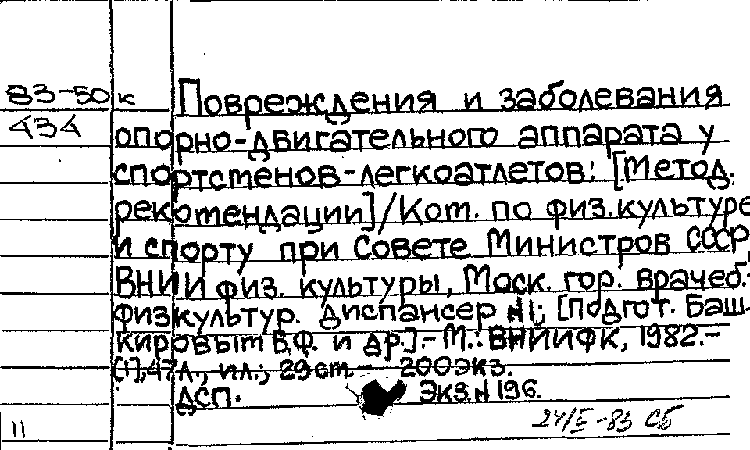 83-50 к Повреждения и заболевания
434 опорно-двигательного аппарата у
спортсменов-легкоатлетов: [Метод.
рекомендации]/Ком. по физ.культуре
и спорту при Совете Министров СССР,
ВНИИ физ. культуры, Моск. гор. врачеб.-
физкультур. диспансер №1; [Подгот. Баш-
кировым В.Ф. и др.].- М.: ВНИИФК, 1982.-
[1],47л., ил.; 29см.- 200экз.
ДСП. Экз.№196.
11